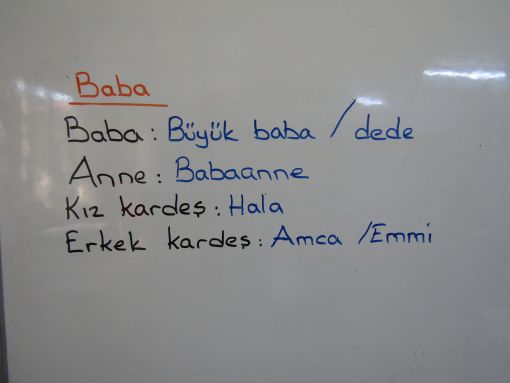 Baba
Baba: Büyük baba / dede
Anne: Babaanne
Kız kardeş: Hala
Erkek kardeş: Amca /Emmi